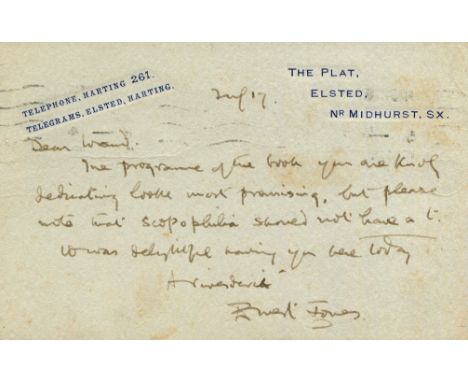 TELEPHONE, HARTING 261.
TELEGRAMS, ELSTED, HARTING.
THE PLAT,
ELSTED,
NR MIDHURST, SX.
July 17.
Dear
The programme of the book you are kindly
dedicating looks most promising, but please
note that scopophilia should not have a t.
It was delightful having you here today
Ernest Jones